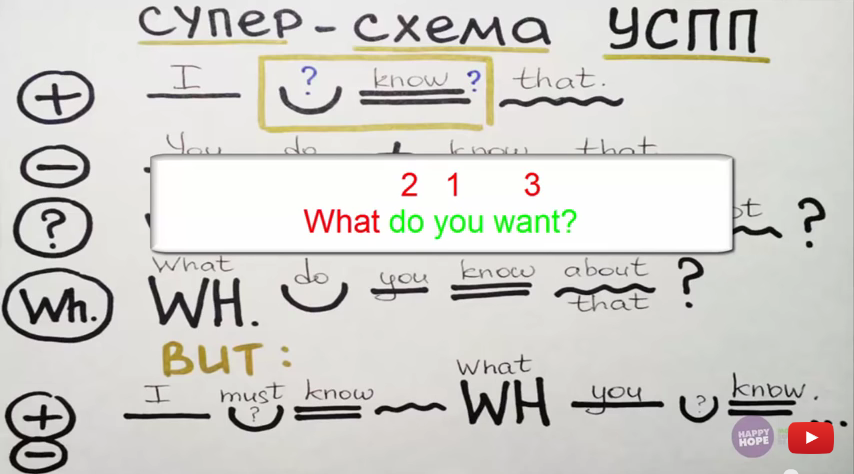 СУПЕР-СХЕМА УСПП
+ I ? know ? that.
- You do know that
2 1 3
What do you want?
? ?
Wh. What WH. do you know about that ?
BUT:
+ - I must ? know What WH you ? know. ...
HAPPY HOPE